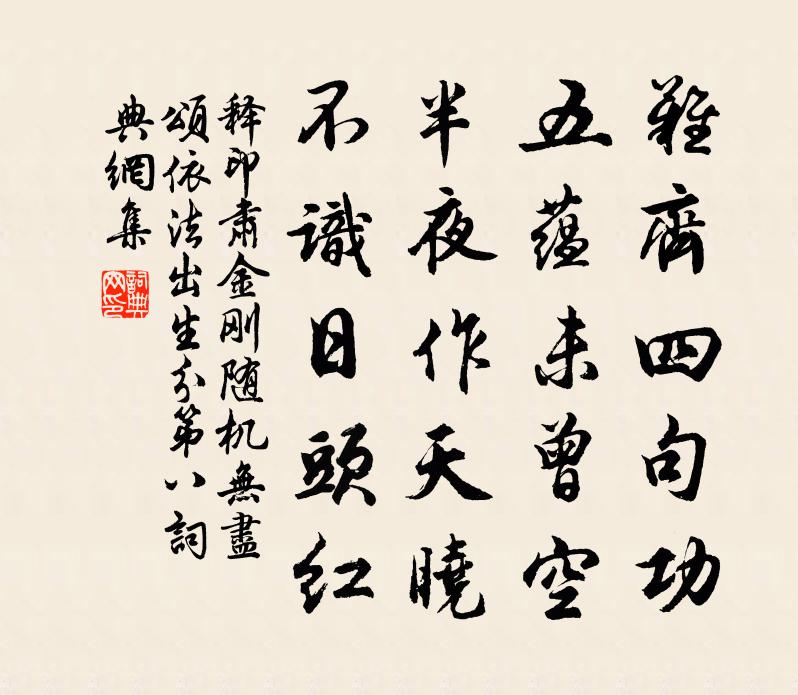 難齊四句功
五蘊未曾空
半夜作天曉
不識日頭紅
释印肅金刚随机無盡
頌依法出生分第八詞
典網集
詞典网印